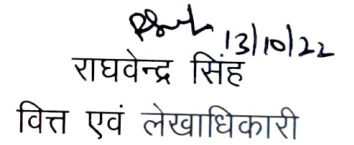 13/10/22
राघवेन्द्र सिंह
वित्त एवं लेखाधिकारी